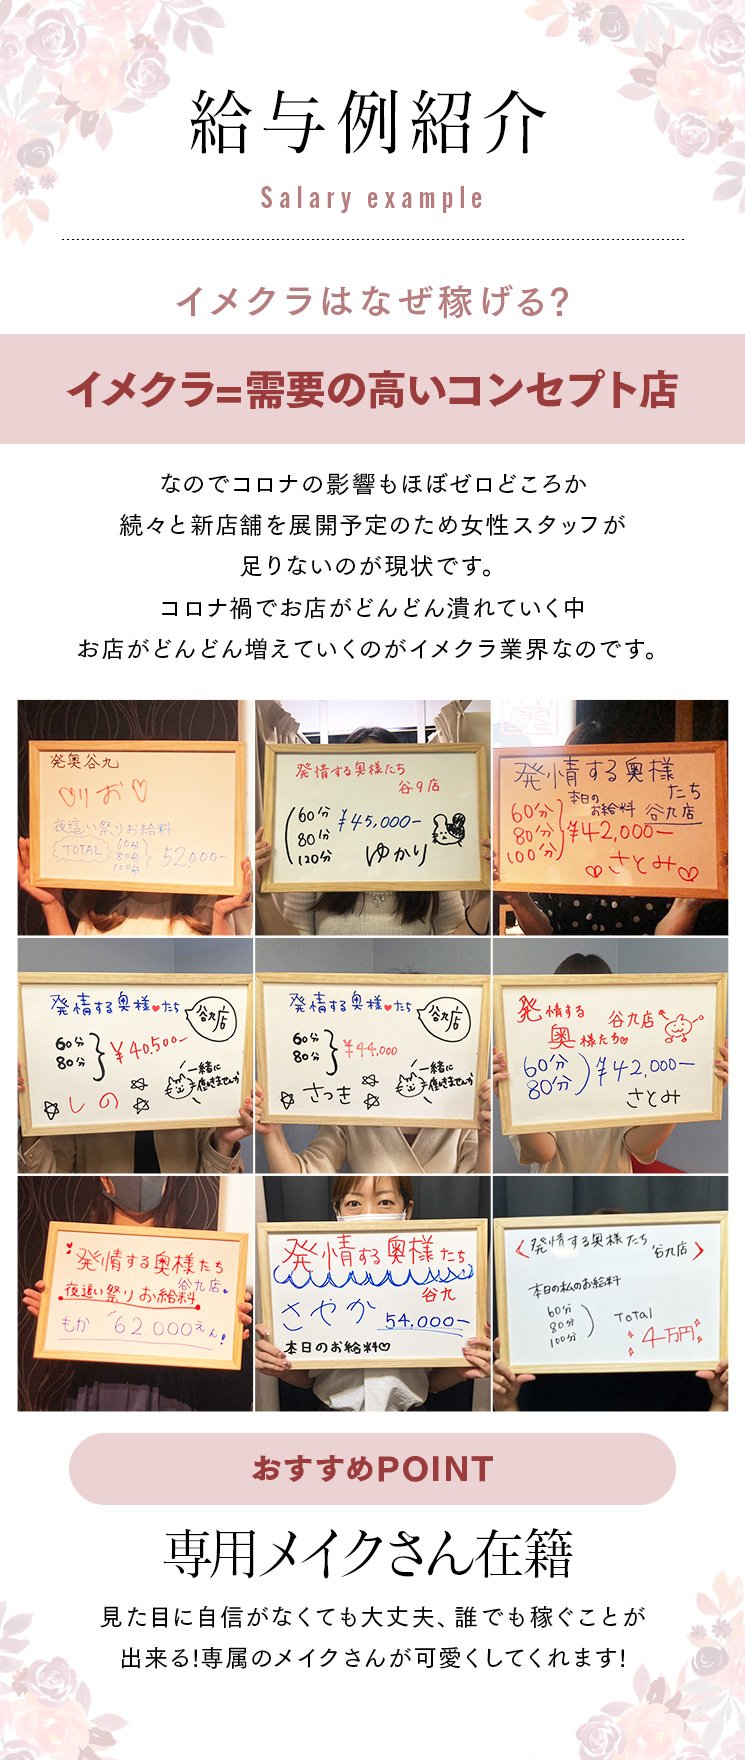 給与例紹介
Salary example
イメクラはなぜ稼げる?
イメクラ=需要の高いコンセプト店
なのでコロナの影響もほぼゼロどころか
続々と新店舗を展開予定のため女性スタッフが
足りないのが現状です。
コロナ禍でお店がどんどん潰れていく中
お店がどんどん増えていくのがイメクラ業界なのです。
発奥谷九
♡りお♡
夜這い祭りお給料
TOTAL
60分
80分
100分
52,000-
発情する奥様たち
谷9店
60分
80分
120分
¥45,000-
ゆかり
発情する奥様
たち
本日の
お給料
谷九店
60分
80分
100分
¥42,000-
♡さとみ♡
発情する奥様♥たち
谷九店
60分
80分
¥40,500-
一緒に
働きませんか
☆しの☆
発情する奥様♥たち
谷九店
60分
80分
¥44,000
一緒に
働きませんか
☆さつき☆
発情する
谷九店
奥様たち♡
60分
80分
¥42,000-
さとみ
発情する奥様たち
谷九店
夜這い祭りお給料
もか 62.000えん!
発情する奥様たち
谷九
さやか
54,000-
本日のお給料♡
発情する奥様たち
谷九店
本日の私のお給料
60分
80分
100分
Total
4万円
おすすめPOINT
専用メイクさん在籍
見た目に自信がなくても大丈夫、誰でも稼ぐことが
出来る!専属のメイクさんが可愛くしてくれます!